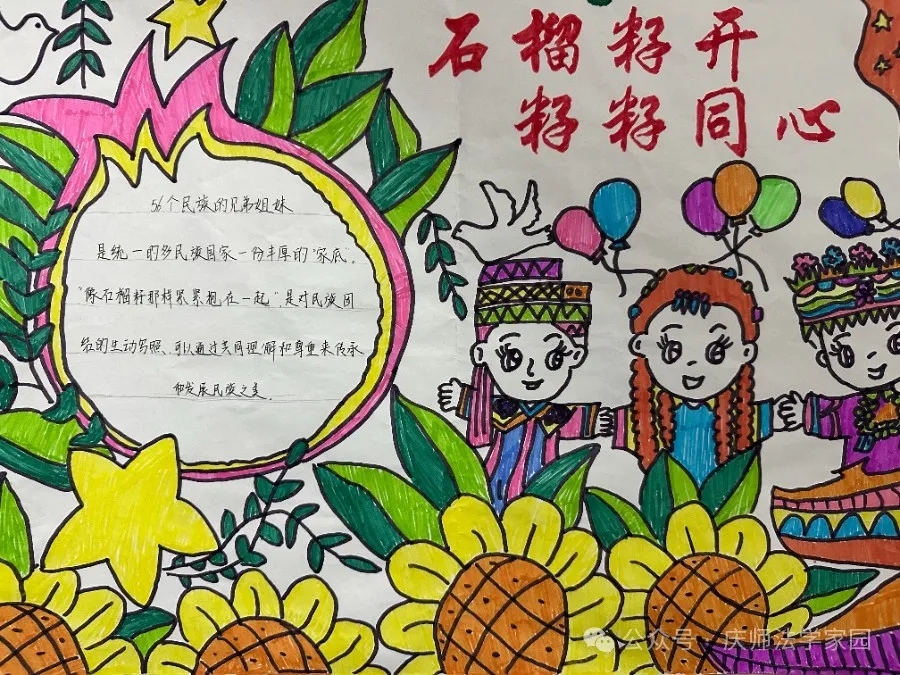 石榴籽开
籽籽同心
56个民族的兄弟姐妹
是统一的多民族国家一份丰厚的“家底”。
“像石榴籽那样紧紧抱在一起”是对民族团
结的生动写照、可以通过共同理解和尊重来传承
和发展民族之美.
公众号·庆师法学家园